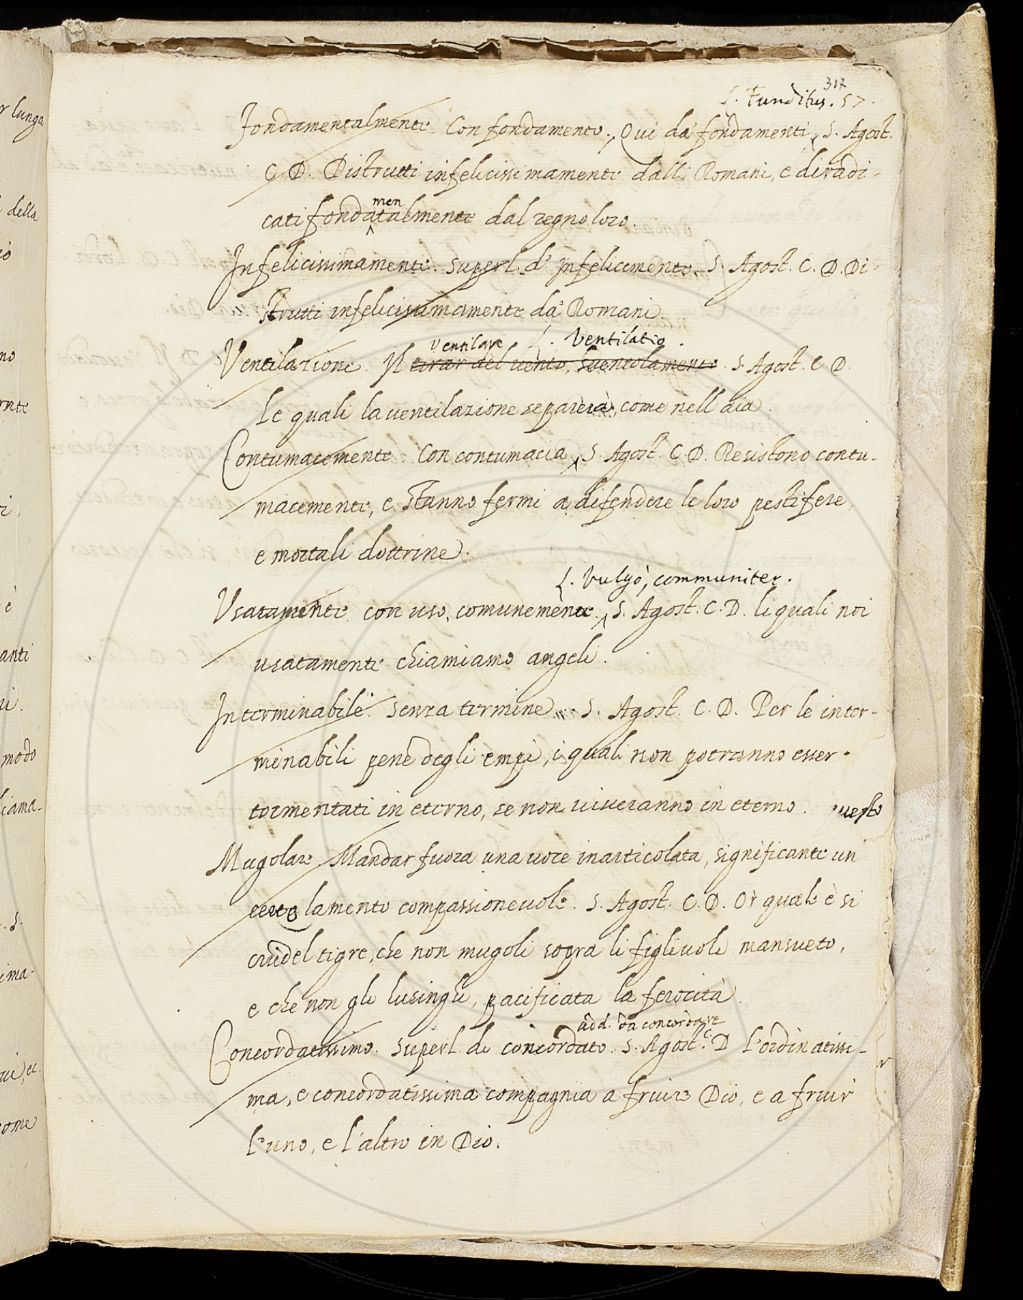 317
L. Funditus. 57.
Fondamentalmente. Con fondamento, Qui da fondamenti, S. Agost.
C. D. Distrutti infelicissimamente dalli Romani, e diradi-
cati fondamentalmente dal regno loro.
Infelicissimamente. Superl. d' Infelicemente. S. Agost. C. D. Di-
strutti infelicissimamente da Romani.
ventilare L. Ventilatio.
Ventilazione. Il tirar del vento, sventolamento. S. Agost. C. D.
Le quali la ventilazione separerà, come nell' aia.
Contumacemente. Con contumacia, S. Agost. C. D. Resistono contu-
macemente, e stanno fermi a difendere le loro pestifere,
e mortali dottrine.
L. Vulgò, communiter.
Usatamente. con uso, comunemente. S. Agost. C. D. li quali noi
usatamente chiamiamo angeli.
Interminabile. senza termine. S. Agost. C. D. Per le inter-
minabili pene degli empi, i quali non potranno esser
tormentati in eterno, se non viveranno in eterno.
Mugolare. Mandar fuora una voce inarticolata, significante un
certo lamento compassionevole. S. Agost. C. D. Or quale è sì
crudel tigre, che non mugoli sopra li figlivoli mansueto,
e che non gli lusinghi, pacificata la ferocità.
add. da concordare
Concordatissimo. Superl. di concordato. S. Agost. C. D. L'ordinatissi-
ma, e concordatissima compagnia a fruire Dio, e a fruir
l'uno, e l'altro in Dio.